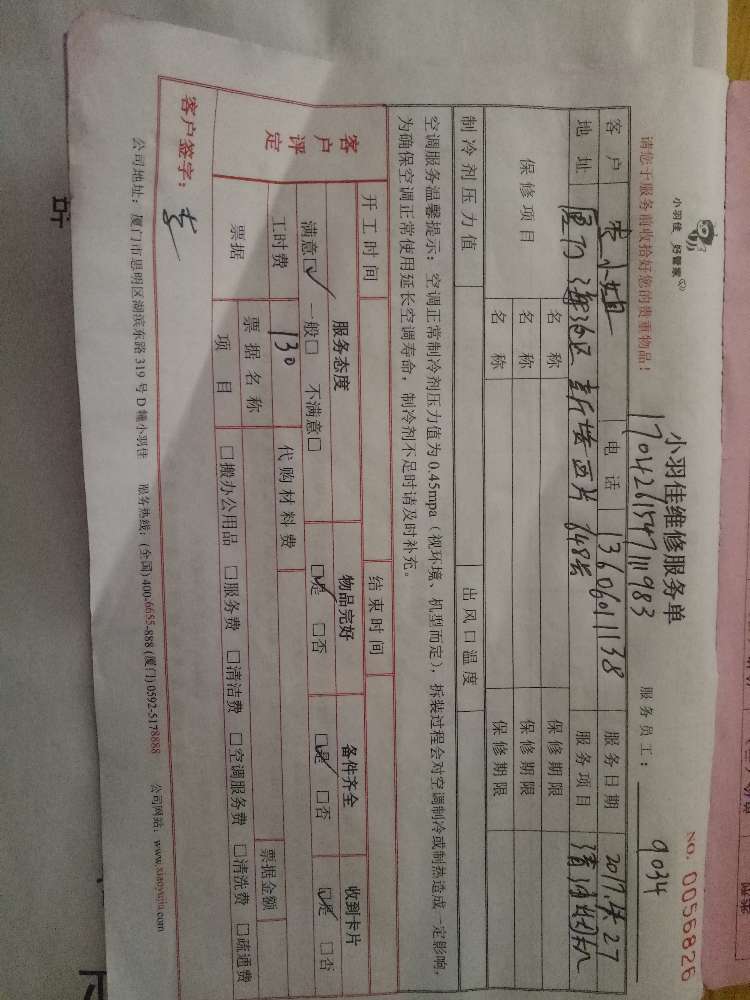 小羽佳 好管家
请您于服务前收拾好您的贵重物品!
小羽佳维修服务单
NO. 0056826
服务员工: 9034
客户 小姐 电话 13606011138 服务日期 2017. 27
地址 厦门 海沧区 服务项目 清洗
保修项目 名称 保修期限
名称 保修期限
名称 保修期限
制冷剂压力值 出风口温度
空调服务温馨提示: 空调正常制冷剂压力值为0.45mpa(视环境、机型而定), 拆装过程会对空调制冷或制热造成一定影响,
为确保空调正常使用延长空调寿命, 制冷剂不足时请及时补充。
开工时间 结束时间
客户评定 服务态度 物品完好 备件齐全 收到卡片
满意☑ 一般□ 不满意□ ☑是 □否 ☑是 □否 ☑是 □否
工时费 130 代购材料费
票据 票据名称 票据金额
项目 □搬办公用品 □服务费 □清洁费 □空调服务费 □清洗费 □疏通费
客户签字:
公司地址: 厦门市思明区湖滨东路319号D幢小羽佳 服务热线: (全国) 400-6655-888 (厦门) 0592-5178888 公司网站: www.xiaoyujia.com